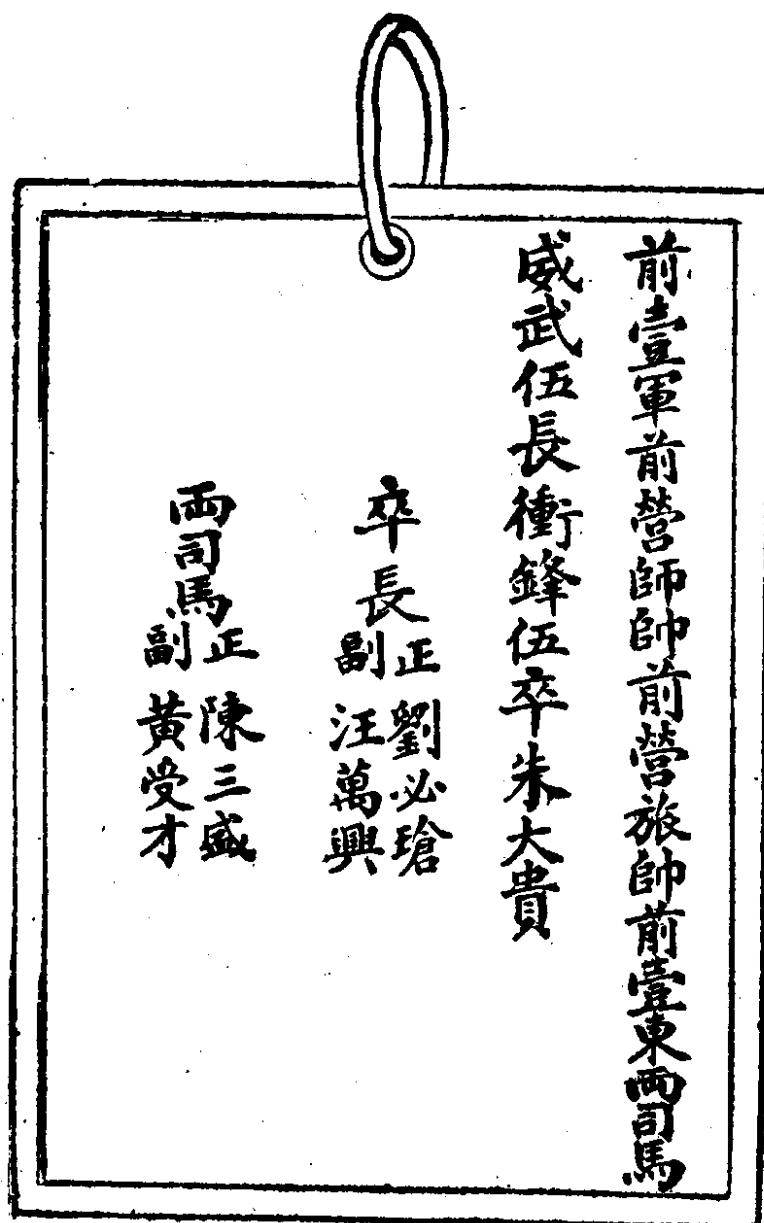 前壹軍前營師帥前營旅帥前壹東兩司馬
威武伍長衝鋒伍卒朱大貴
卒長正劉必瑲
副汪萬興
兩司馬正陳三盛
副黃受才